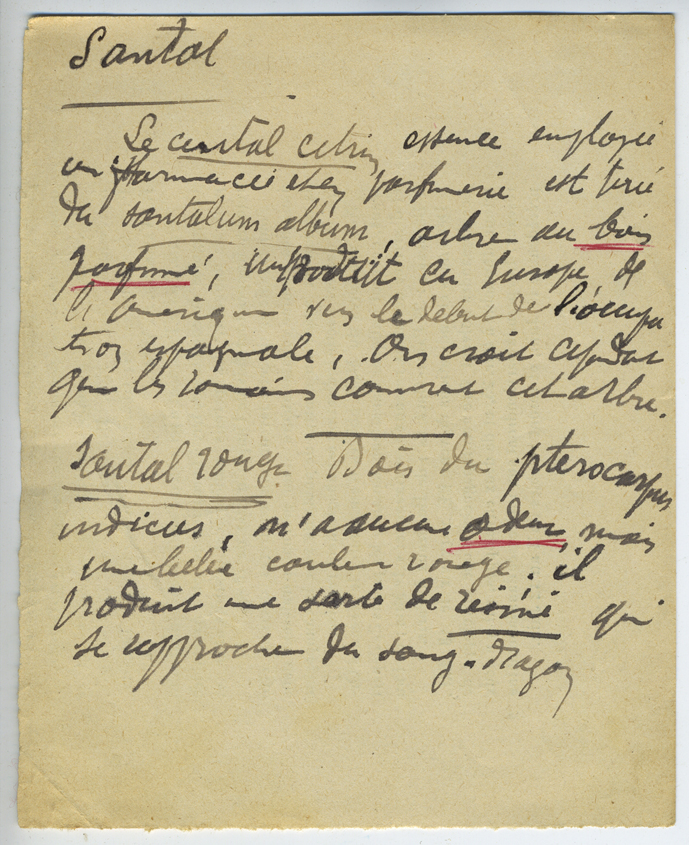 Santal
Le santal citrin essence employée
en pharmacie et en parfumerie est tiré
du santalum album, arbre au bois
parfumé, introduit en Europe de
l'Amérique vers le début de l'occupa
tion espagnole, On croit cependant
que les romains connurent cet arbre.
Santal rouge Bois du pterocarpus
indicus, n'a aucune odeur mais
une belle couleur rouge. il
produit une sorte de résine qui
se rapproche du sang-dragon